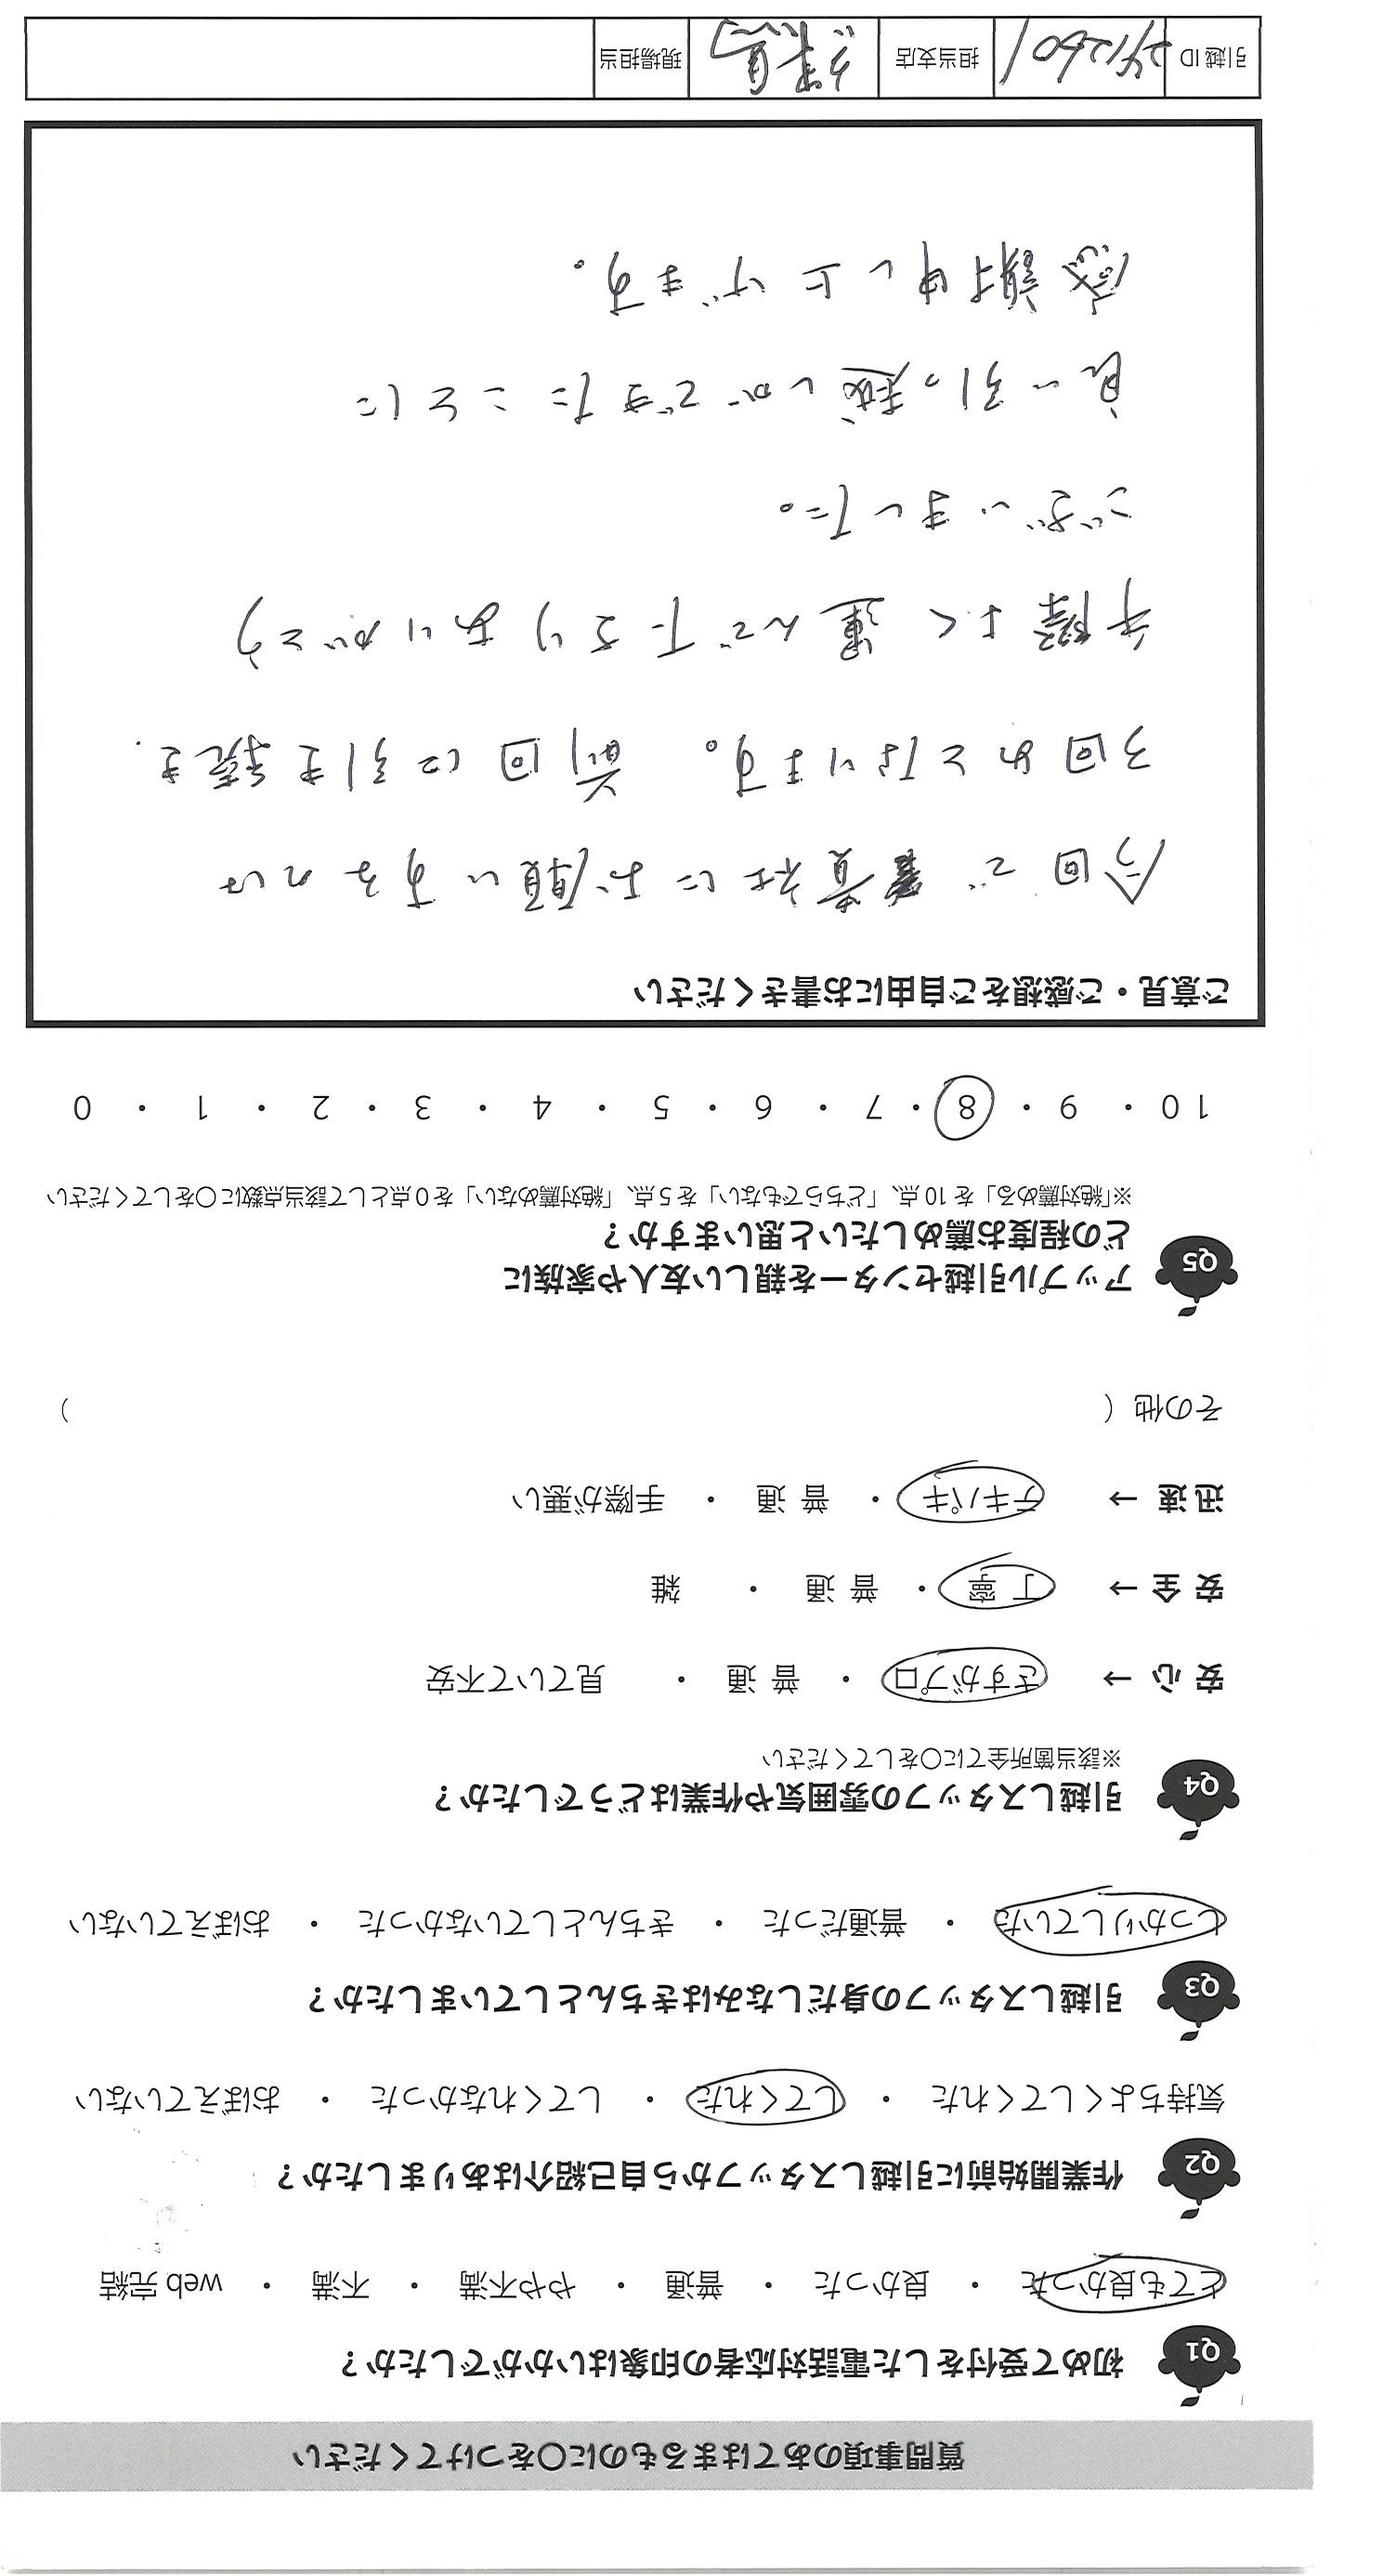 質問事項のあてはまるものに○をつけてください
Q1 初めて受付をした電話対応者の印象はいかがでしたか？
とても良かった ・ 良かった ・ 普通 ・ やや不満 ・ 不満 ・ web 完結
Q2 作業開始前に引越しスタッフから自己紹介はありましたか？
気持ちよくしてくれた ・ してくれた ・ してくれなかった ・ おぼえていない
Q3 引越しスタッフの身だしなみはきちんとしていましたか？
しっかりしていた ・ 普通だった ・ きちんとしていなかった ・ おぼえていない
Q4 引越しスタッフの雰囲気や作業はどうでしたか？
※該当箇所全てに○をしてください
安 心 → さすがプロ ・ 普 通 ・ 見ていて不安
安 全 → 丁 寧 ・ 普 通 ・ 雑
迅 速 → テキパキ ・ 普 通 ・ 手際が悪い
その他（ ）
Q5 アップル引越センターを親しい友人や家族に
どの程度お薦めしたいと思いますか？
※「絶対薦める」を 10 点、「どちらでもない」を 5 点、「絶対薦めない」を 0 点として該当点数に○をしてください
10 ・ 9 ・ 8 ・ 7 ・ 6 ・ 5 ・ 4 ・ 3 ・ 2 ・ 1 ・ 0
ご意見・ご感想をご自由にお書きください
今回で 貴社にお願いするのは
3回めとなります。前回に引き続き
手際よく運んで下さりありがとう
ございました。
良い引っ越しができたことに
感謝申し上げます。
引越 ID 担当支店 現場担当